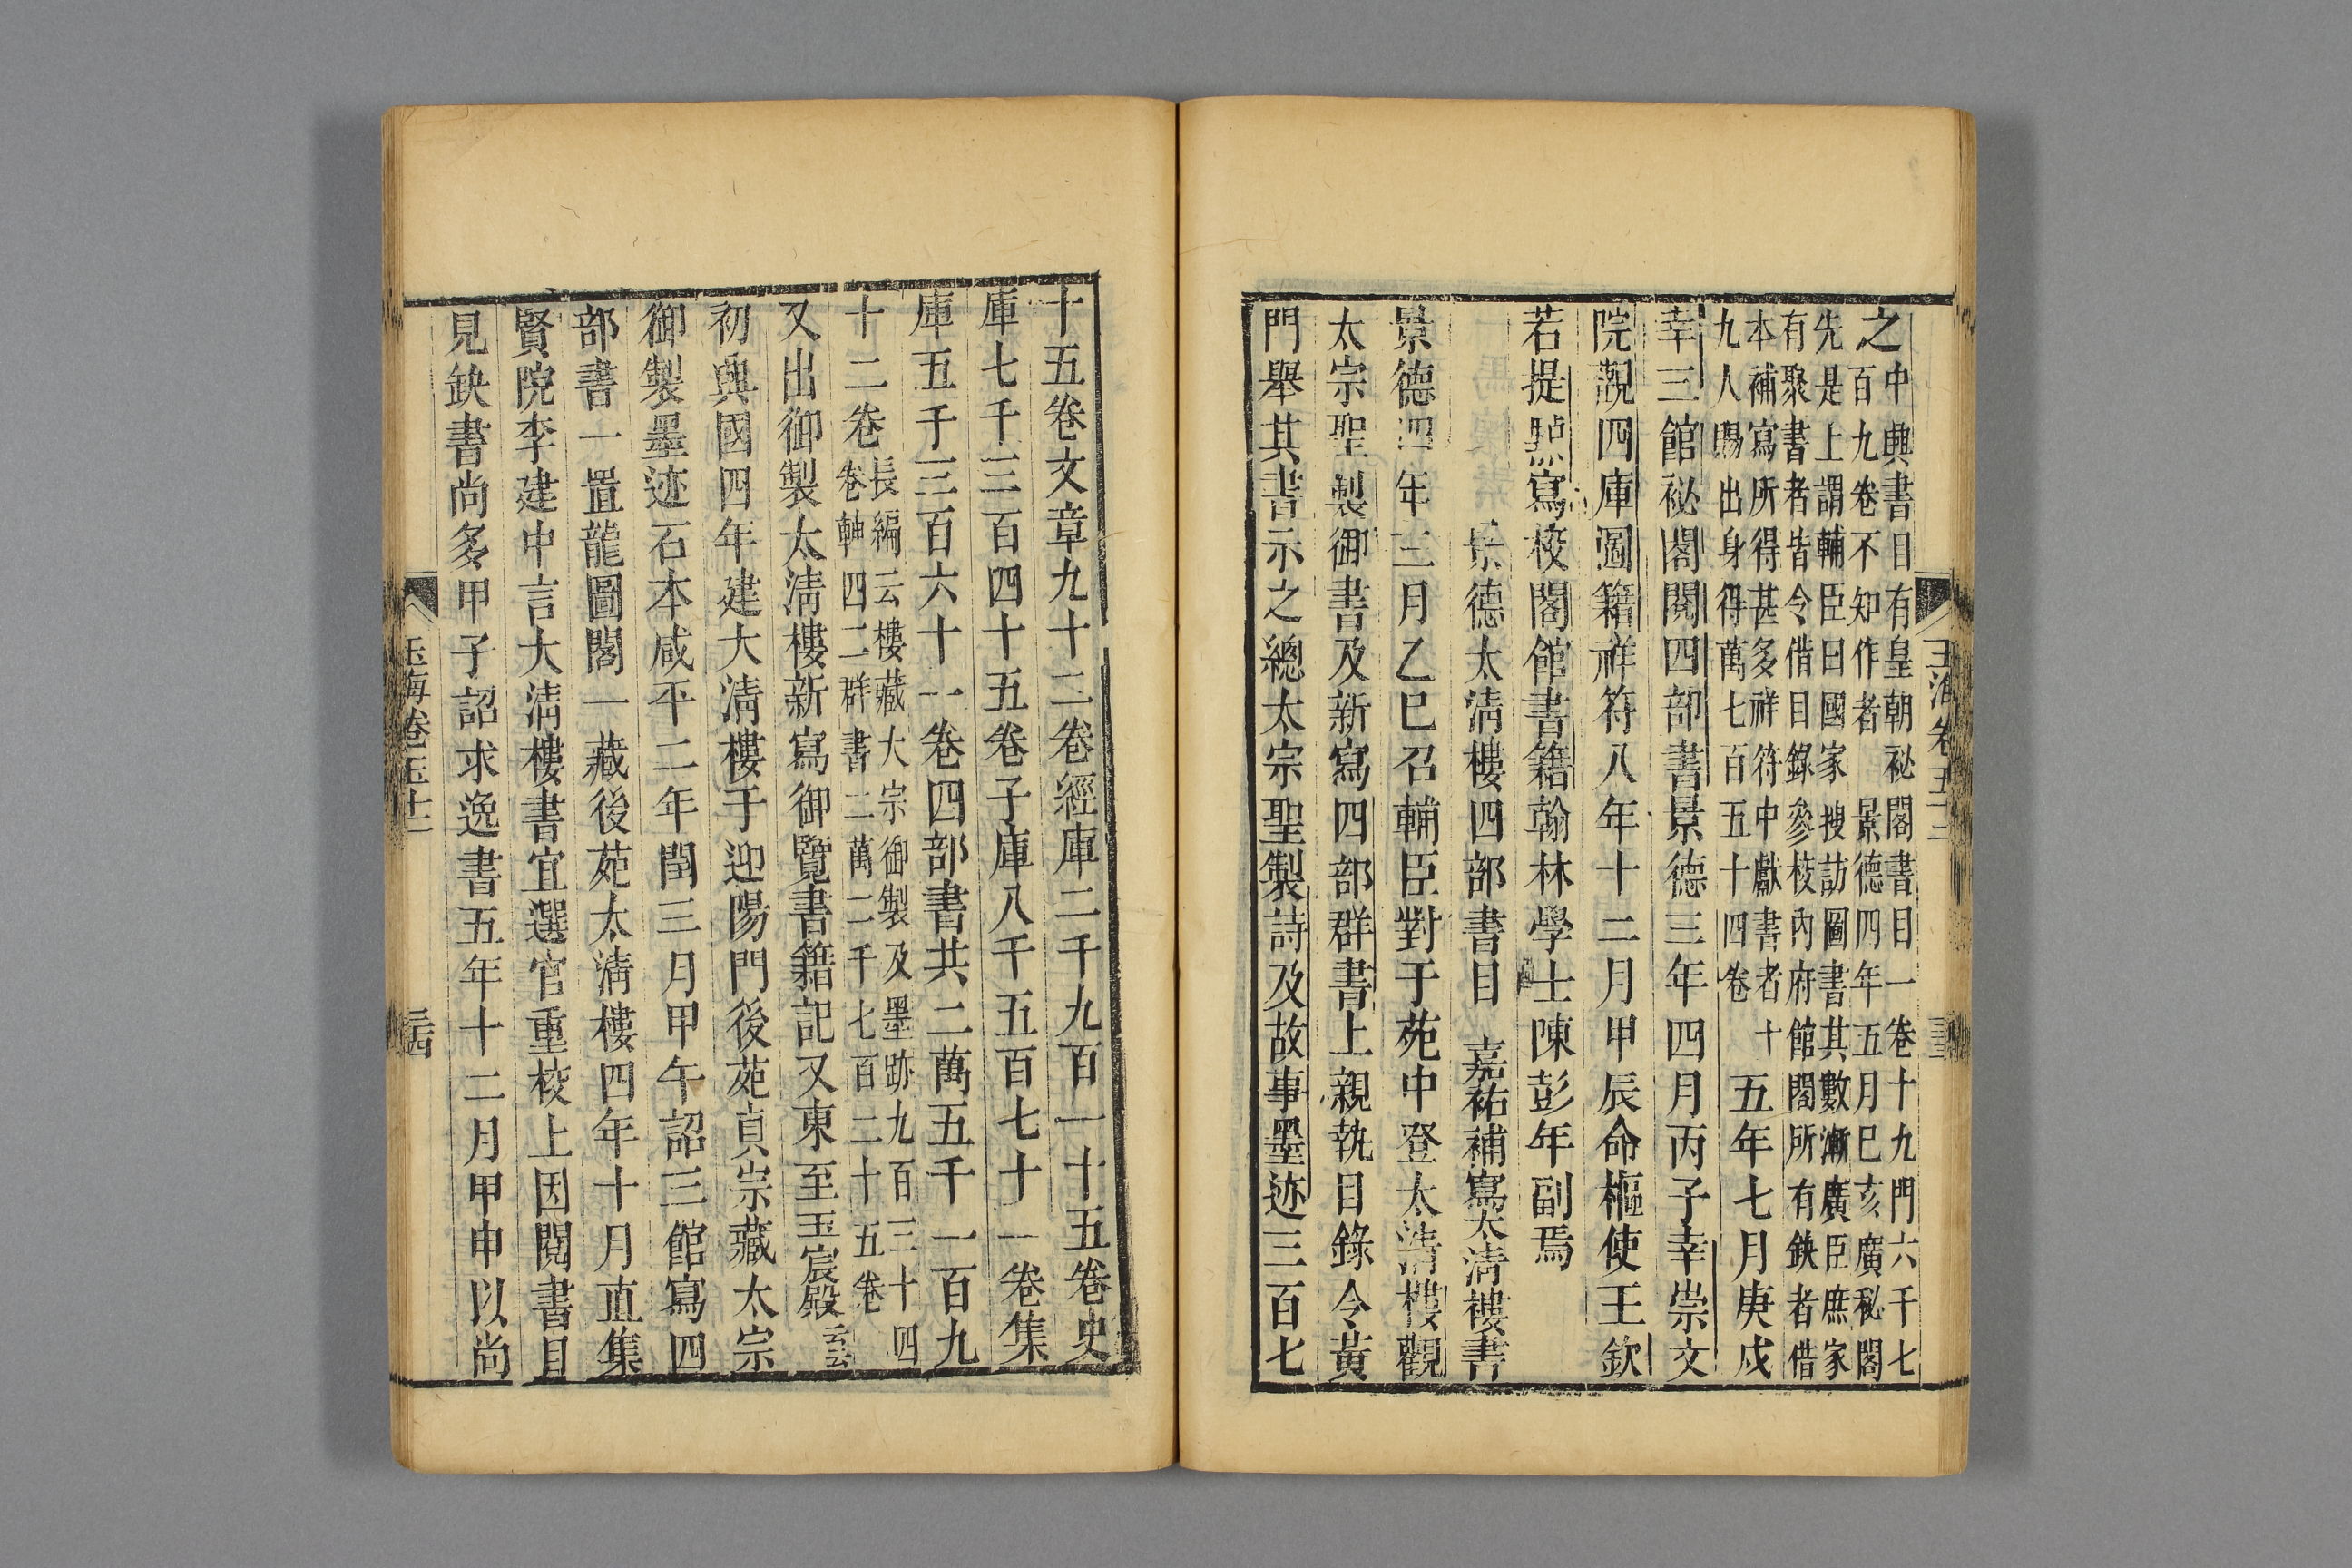 玉海卷五十二
之中興書目有皇朝祕閣書目一卷十九門六千七
百九卷不知作者 景德四年五月巳亥廣秘閣
先是上謂輔臣曰國家搜訪圖書其數漸廣臣庶家
有聚書者皆令借目錄參校內府館閣所有鈌者借
本補寫所得甚多祥符中獻書者十
九人賜出身得萬七百五十四卷 五年七月庚戍
幸三館祕閣閱四部書景德三年四月丙子幸崇文
院觀四庫圖籍祥符八年十二月甲辰命樞使王欽
若提㸃寫校閣館書籍翰林學士陳彭年副焉
景德太清樓四部書目 嘉祐補寫太清樓書
景德四年三月乙巳召輔臣對于苑中登太清樓觀
太宗聖製御書及新寫四部群書上親執目錄令黃
門舉其書示之總太宗聖製詩及故事墨迹三百七
十五卷文章九十二卷經庫二千九百一十五卷史
庫七千三百四十五卷子庫八千五百七十一卷集
庫五千三百六十一卷四部書共二萬五千一百九
十二卷長編云樓藏太宗御製及墨跡九百三十四
卷軸四二群書二萬二千七百二十五卷
又出御製太清樓新寫御覽書籍記又東至玉宸殿云云
初興國四年建太清樓于迎陽門後苑貞宗藏太宗
御製墨迹石本咸平二年閏三月甲午詔三館寫四
部書一置龍圖閣一藏後苑太清樓四年十月直集
賢院李建中言太清樓書宜選官重校上因閱書目
見鈌書尚多甲子詔求逸書五年十二月甲申以尚
玉海卷五十二
三四